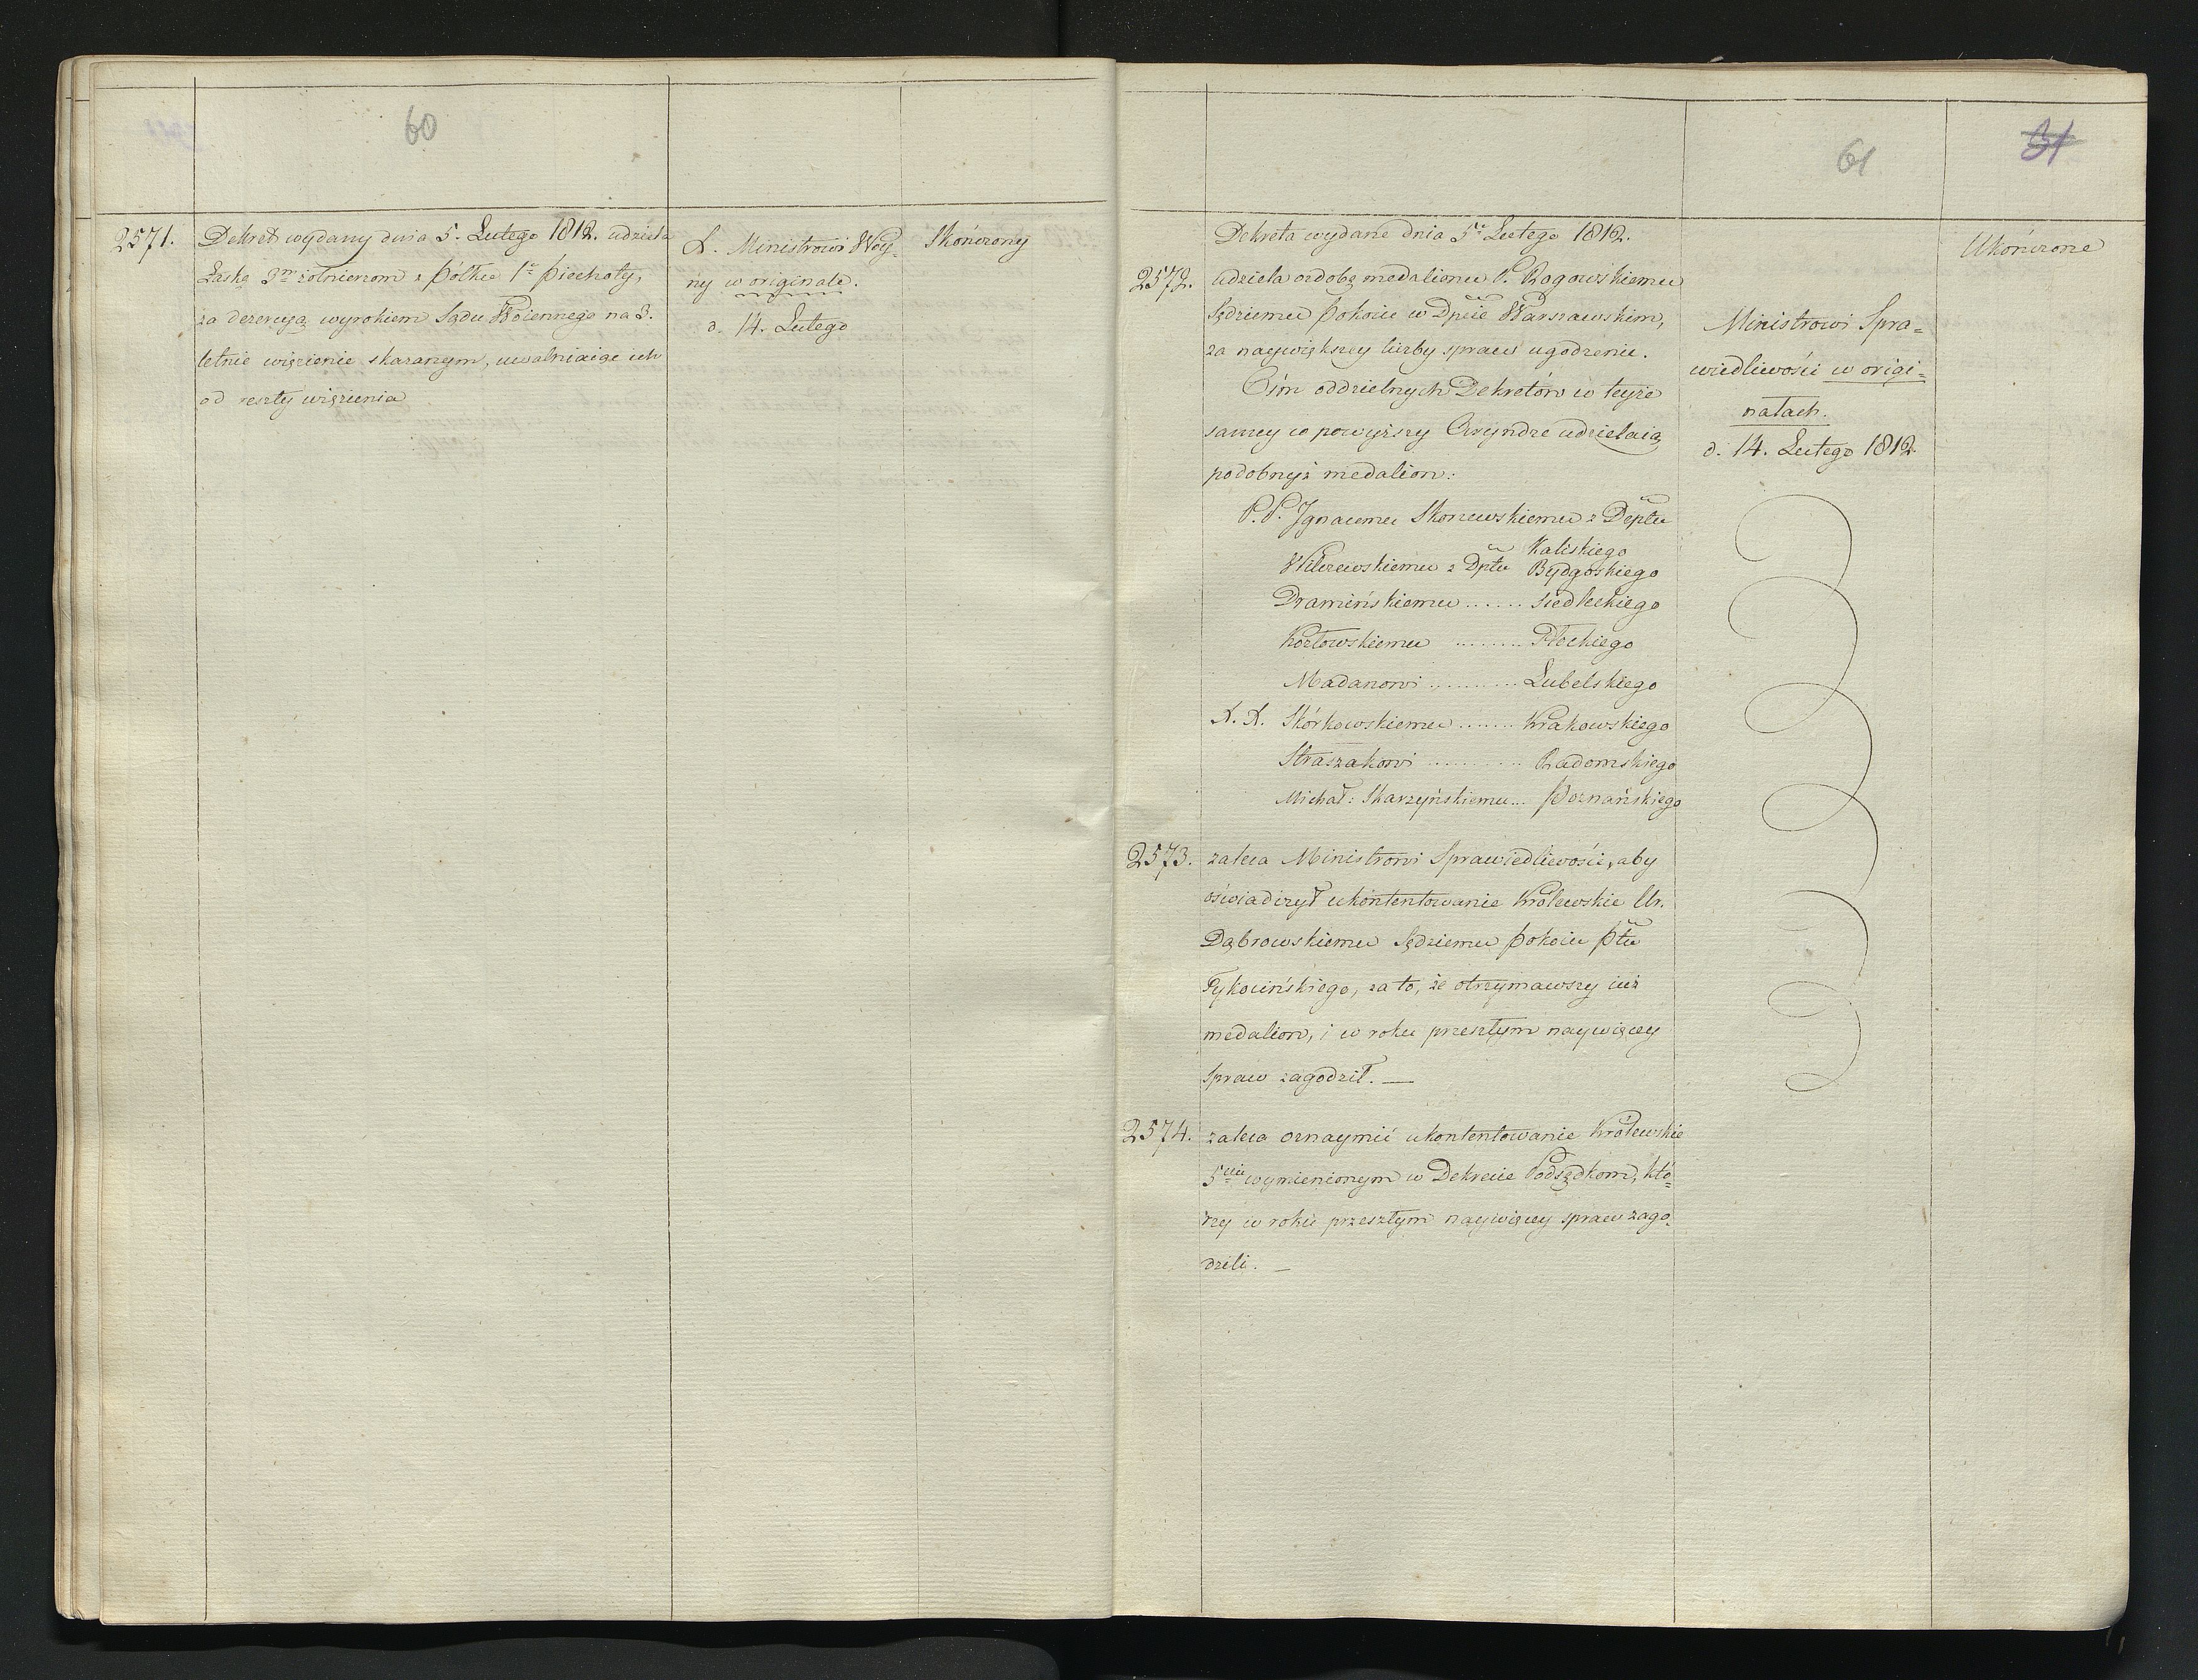 60
2571.
Dekret wydany dnia 5. Lutego 1812. udziela
Łaskę 3m żołnierzom z Półku 1o Piechoty,
za dezercyą wyrokiem Sądu Woiennego na 3.
letnie więzienie skazanym, uwalniaiąc ich
od reszty więzienia
Ministrowi Woy-
ny w originale.
d. 14. Lutego
Skończony
61
31
Dekreta wydane dnia 5o Lutego 1812.
2572.
udziela ozdobę medalionu P. Rogowskiemu
Sędziemu Pokoiu w Dpcie Warszawskim,
za naywiększey liczby spraw ugodzenie.
Ośm oddzielnych Dekretów w teyże
samey co powyższy Osnowie udzielaią
podobnyż medalion:
P.P. Ignacemu Skorzewskiemu z Deptu
Kaliskiego
Wilczewskiemu z Dptu Bydgoskiego
Dramińskiemu ...... Siedleckiego
Kozłowskiemu ........ Płockiego
Madanowi .......... Lubelskiego
X. X. Skórkowskiemu ....... Krakowskiego
Straszakowi .......... Radomskiego
Michał: Skarzyńskiemu... Poznańskiego
Ministrowi Spra=
wiedliwości w origi=
nałach.
d. 14. Lutego 1812.
Ukończone
2573.
zaleca Ministrowi Sprawiedliwości, aby
oświadczył ukontentowanie Królewskie Ur.
Dąbrowskiemu Sędziemu Pokoiu Ptu
Tykocińskiego, za to, że otrzymawszy iuż
medalion, i w roku przeszłym naywięcey
Spraw zagodził. —
2574.
zaleca oznaymić ukontentowanie Królewskie
5ciu wymienionym w Dekrecie Podsędkom, któ=
rzy w roku przeszłym naywięcey spraw zago=
dzili. —